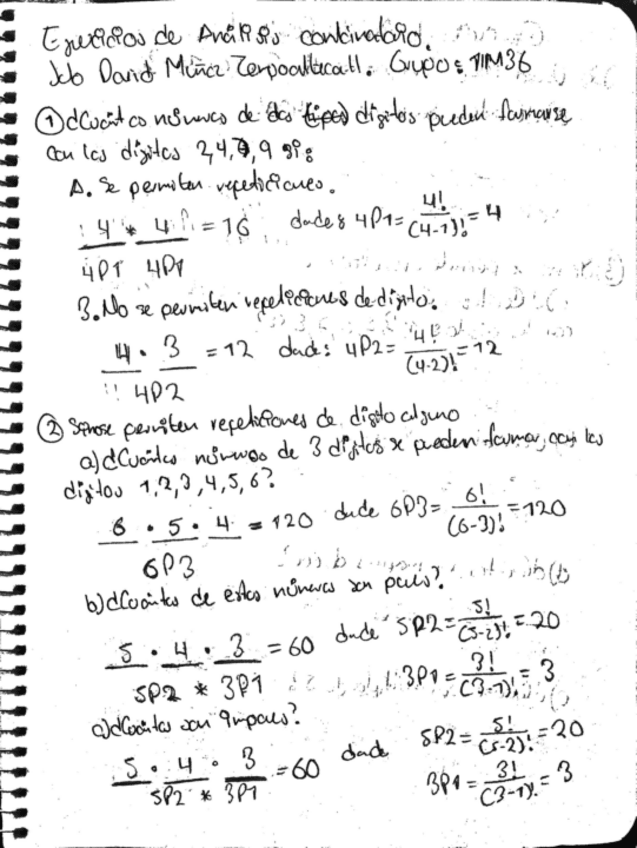 Ejercicios de Análisis combinatorio.
Job David Muñoz Grupo: 1IM36
① ¿Cuántos números de dos dígitos pueden formarse
con los dígitos 2,4,7,9 si:
A. Se permiten repeticiones.
4 * 4 = 16 donde: 4P1 = 4!/(4-1)! = 4
4P1 4P1
B. No se permiten repeticiones de dígito.
4 · 3 = 12 donde: 4P2 = 4!/(4-2)! = 12
4P2
② Si no se permiten repeticiones de dígito alguno
a) ¿Cuántos números de 3 dígitos se pueden formar, con los
dígitos 1,2,3,4,5,6?
6 · 5 · 4 = 120 donde 6P3 = 6!/(6-3)! = 120
6P3
b) ¿Cuántos de estos números son pares?
5 · 4 · 3 = 60 donde 5P2 = 5!/(5-2)! = 20
5P2 * 3P1 3P1 = 3!/(3-1)! = 3
c) ¿Cuántos son impares?
5 · 4 · 3 = 60 donde 5P2 = 5!/(5-2)! = 20
5P2 * 3P1 3P1 = 3!/(3-1)! = 3